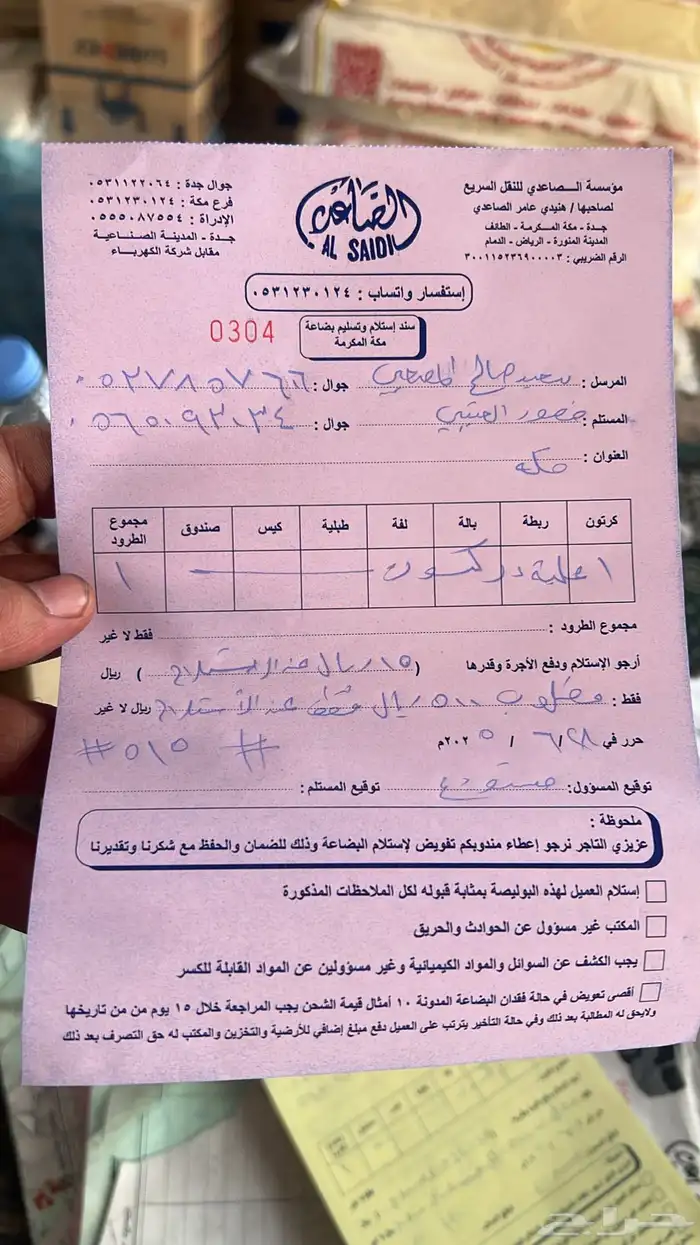 مؤسسة الـصـاعدي للنقل السريع
لصاحبها / هنيدي عامر الصاعدي
جدة - مكة المكرمة - الطائف
المدينة المنورة - الرياض - الدمام
الرقم الضريبي : ٣٠٠١١٥٢٣٦٩٠٠٠٠٣
الصاعدي
AL SAIDI
جوال جدة : ٠٥٣١١٢٢٠٦٤
فرع مكة : ٠٥٣١٢٣٠١٢٤
الإدراة : ٠٥٥٥٠٨٧٥٥٤
جدة - المدينة الصناعية
مقابل شركة الكهرباء
إستفسار واتساب : ٠٥٣١٢٣٠١٢٤
سند إستلام وتسليم بضاعة
مكة المكرمة
0304
المرسل : سعيد صالح جوال :
المستلم : العتيبي جوال : ٠٥٦٥٠٩٣٠٣٤
العنوان : مكه
كرتون ربطة بالة لفة طبلية كيس صندوق مجموع الطرود
١ علية ١
مجموع الطرود : فقط لا غير
أرجو الإستلام ودفع الأجرة وقدرها ( ١٥ ريال ) ريال
فقط : مطلوب ٥٠٠ ريال فقط عند الأستلام ريال لا غير
حرر في ٦/٢٨ / ٢٠٢٥م # ٥١٥ #
توقيع المسؤول : توقيع المستلم :
ملحوظة :
عزيزي التاجر نرجو إعطاء مندوبكم تفويض لإستلام البضاعة وذلك للضمان والحفظ مع شكرنا وتقديرنا
إستلام العميل لهذه البوليصة بمثابة قبوله لكل الملاحظات المذكورة
المكتب غير مسؤول عن الحوادث والحريق
يجب الكشف عن السوائل والمواد الكيميائية وغير مسؤولين عن المواد القابلة للكسر
أقصى تعويض في حالة فقدان البضاعة المدونة ١٠ أمثال قيمة الشحن يجب المراجعة خلال ١٥ يوم من من تاريخها
ولايحق له المطالبة بعد ذلك وفي حالة التأخير يترتب على العميل دفع مبلغ إضافي للأرضية والتخزين والمكتب له حق التصرف بعد ذلك
حراج